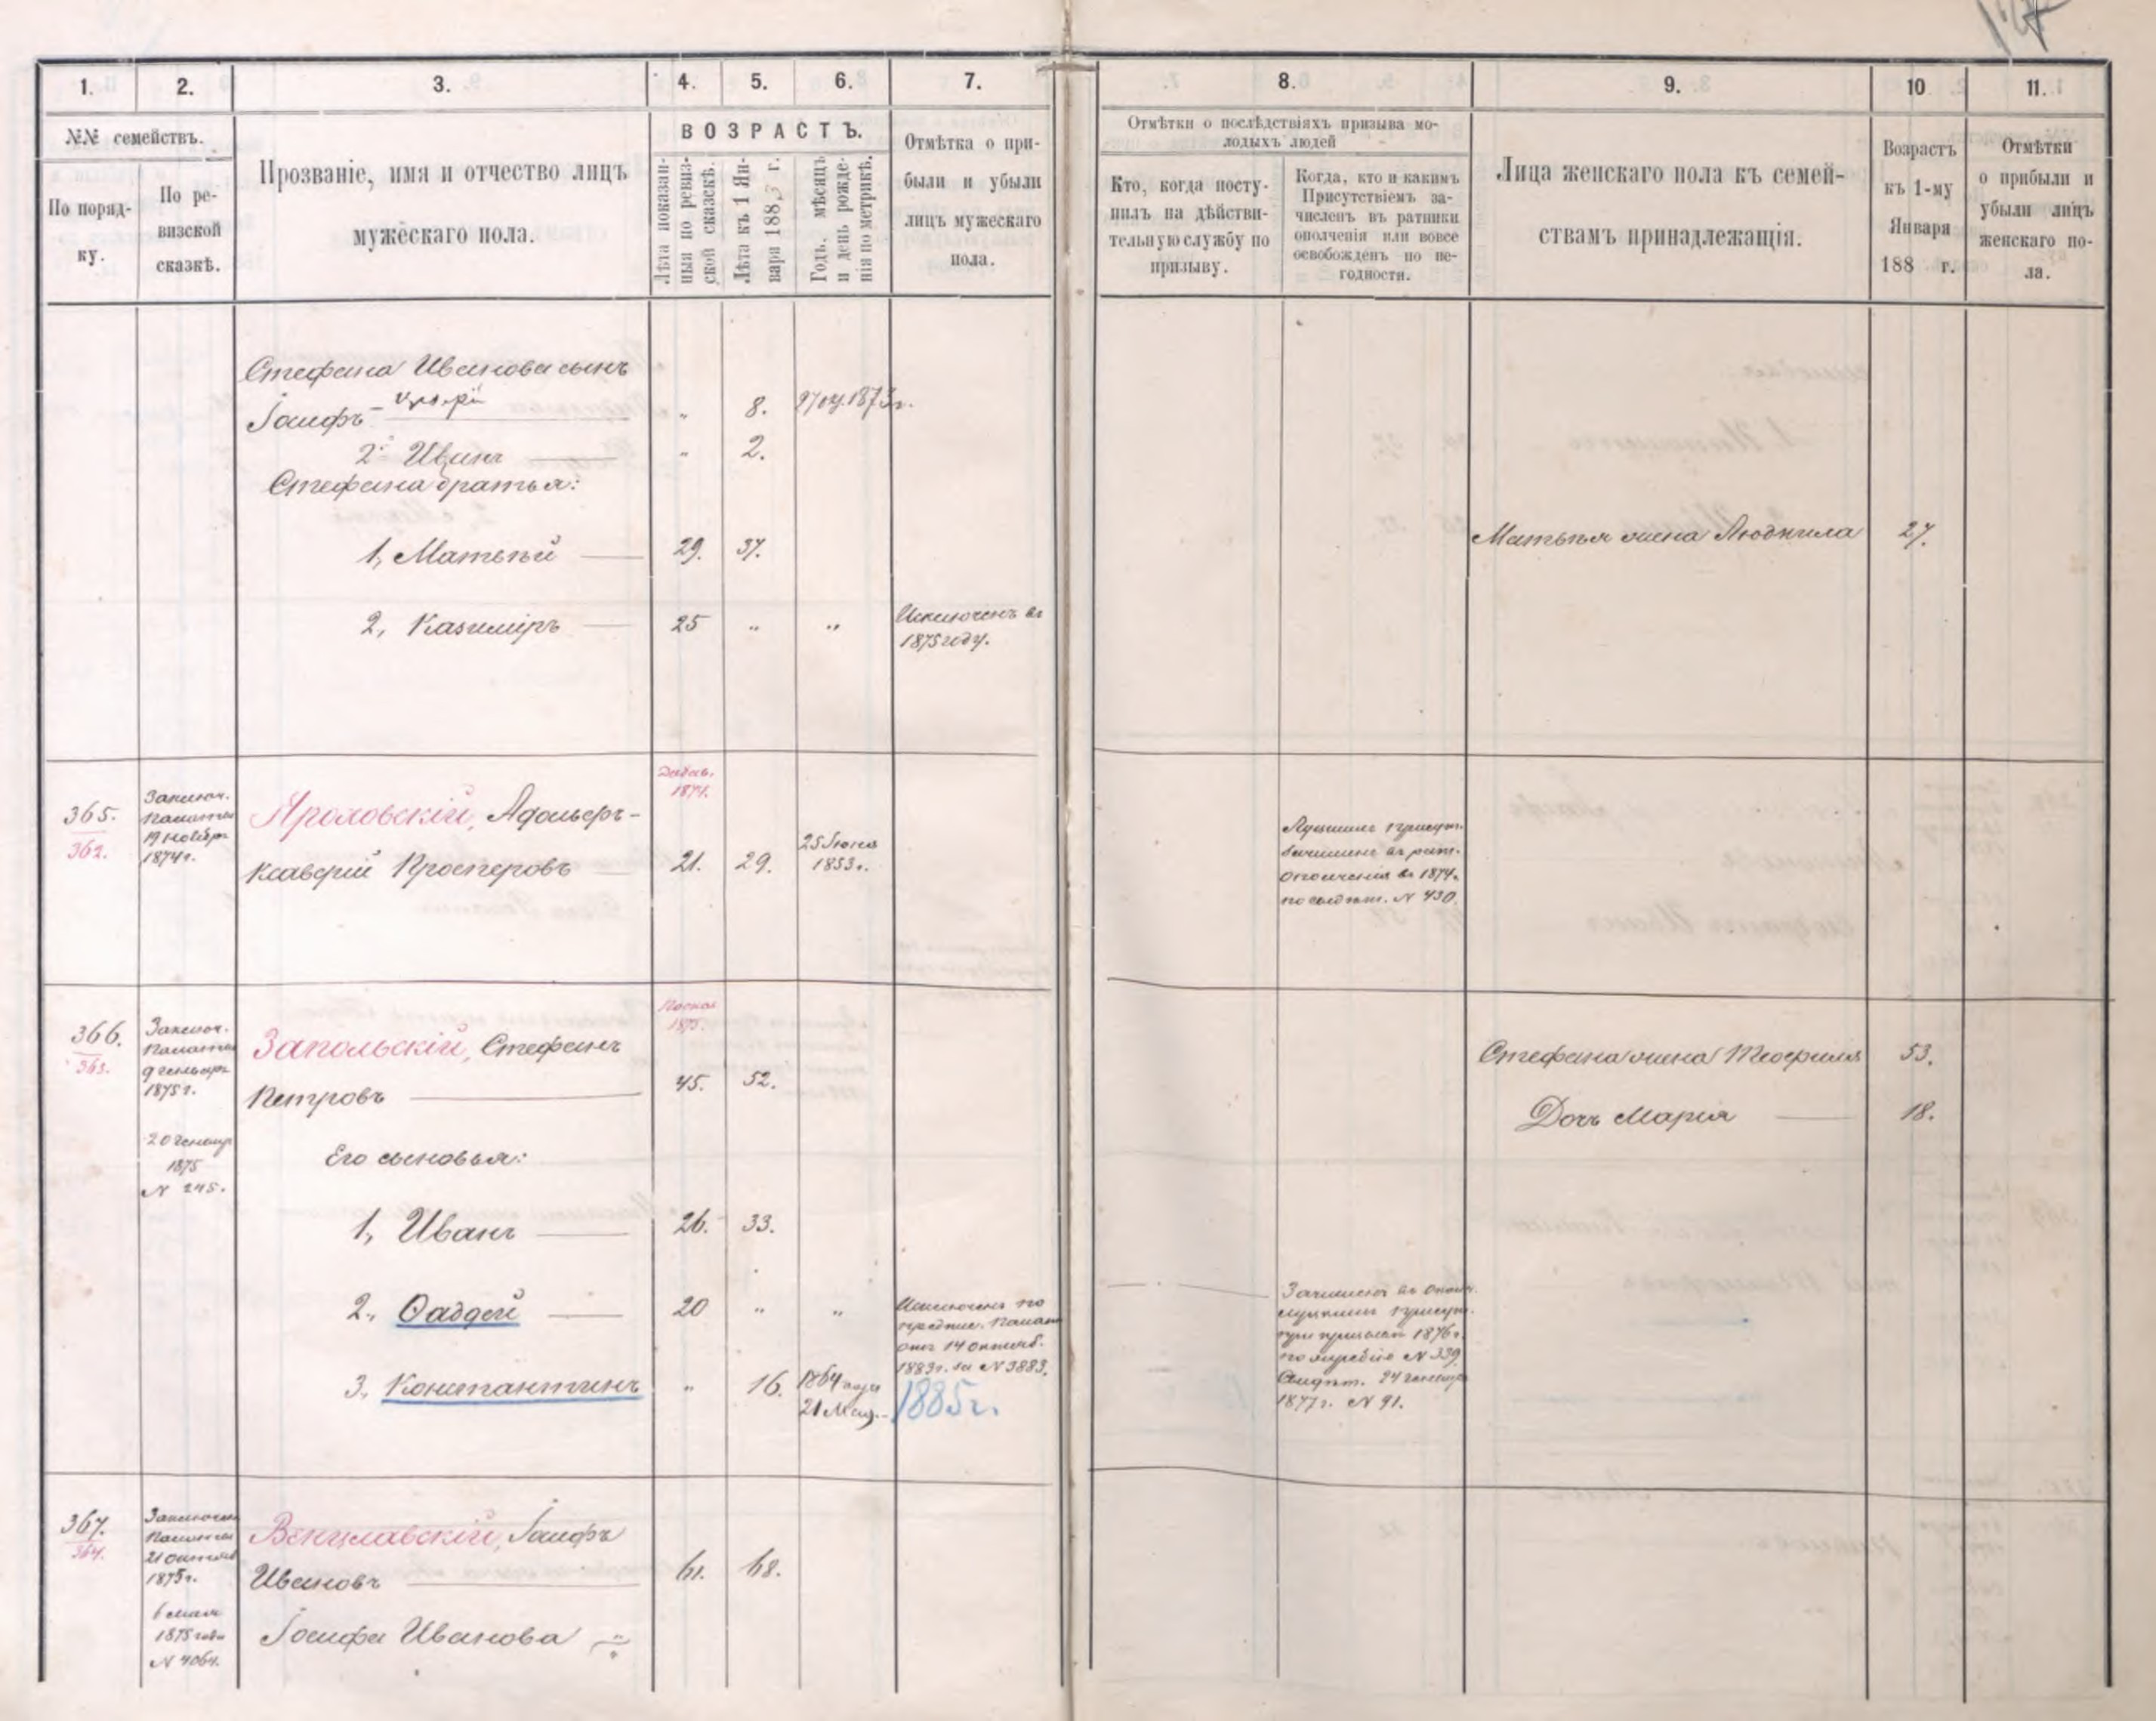 1.
2.
3.
4.
5.
6.
7.
8.
9.
10
11.
№№ семействъ.
По поряд-
ку.
По ре-
визской
сказкѣ.
Прозваніе, имя и отчество лицъ
мужескаго пола.
ВОЗРАСТЪ.
Лѣта показан-
ныя по ревиз-
ской сказкѣ.
Лѣта къ 1 Ян-
варя 1883 г.
Годъ, мѣсяцъ
и день рожде-
нія по метрикѣ.
Отмѣтка о при-
были и убыли
лицъ мужескаго
пола.
Отмѣтки о послѣдствіяхъ призыва мо-
лодыхъ людей
Кто, когда посту-
пилъ на дѣйстви-
тельную службу по
призыву.
Когда, кто и какимъ
Присутствіемъ за-
численъ въ ратники
ополченія или вовсе
освобожденъ по не-
годности.
Лица женскаго пола къ семей-
ствамъ принадлежащія.
Возрастъ
къ 1-му
Января
188 г.
Отмѣтки
о прибыли и
убыли лицъ
женскаго по-
ла.
Стефана Иванова сынъ
Іосифъ „ 8. 1873г.
2й Иванъ „ 2.
Стефана братья:
1, Матвѣй 29. 37. Матвѣя жена Людмила 27.
2, Казиміръ 25 „ „ Исключенъ въ
1875 году.
365.
362.
Заключ.
Палаты
19 Ноября
1874г.
Добав.
1874.
Яроховскій, Адольфъ-
Ксаверій Просперовъ 21. 29. 25 Іюня
1853г.
Луцкимъ Присут.
зачисленъ въ рат.
ополченія въ 1874.
N 430.
366.
363.
Заключ.
Палаты
9 Генваря
1875г.
20 Генвар
1875
N 245.
1875.
Запольскій, Стефанъ
Петровъ 45. 52.
Стефана жена Теофиля 53.
Дочь Марія 18.
Его сыновья:
1, Иванъ 26. 33.
2., Фаддей 20 „ „
Исключенъ по
предпис. Палат
отъ 14 октяб.
1883г. за N 3883.
Зачисленъ въ ополч.
Луцкимъ Присут.
при призывѣ 1876г.
по жребію N 339.
Свидѣт. 24 Генвар
1877г. N 91.
3, Константинъ „ 16. 1864 года
21 Мая. 1885г.
367.
364.
Заключен
Палаты
21 Октяб
1875г.
6 мая
1875 года
N 4064.
Венцлавскій, Іосифъ
Ивановъ 61. 68.
Іосифа Иванова